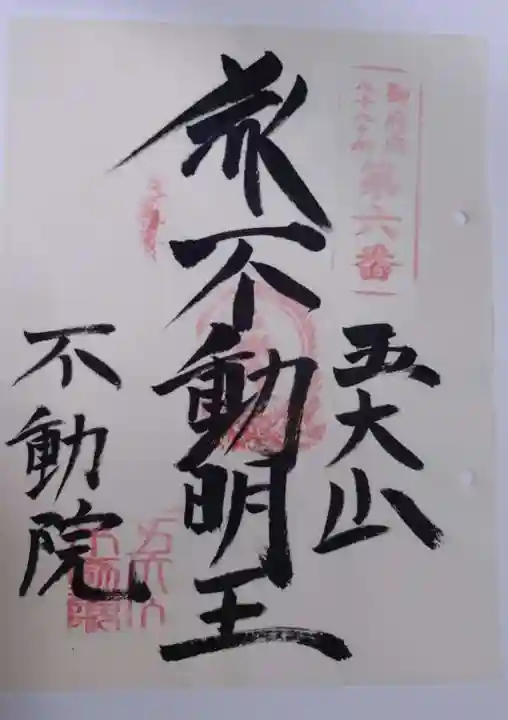 第六番
五大山
赤不動明王
不動院